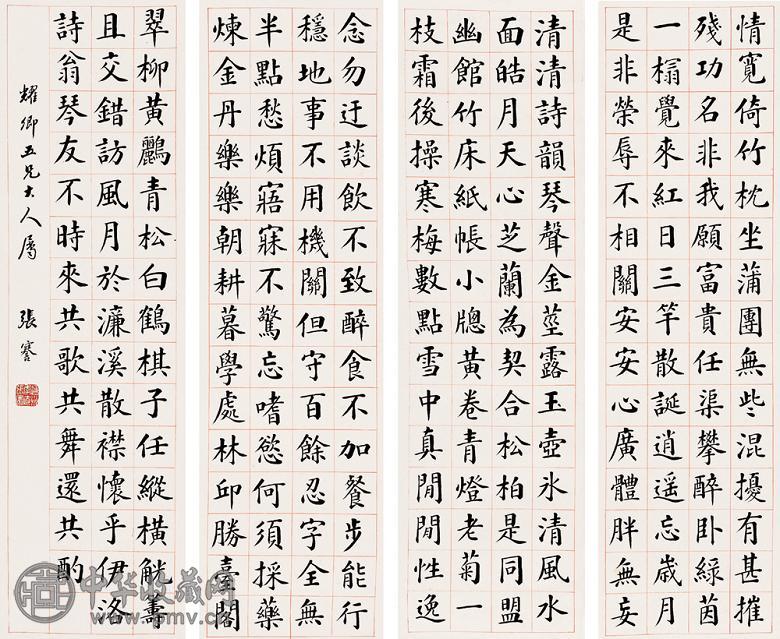 情寬倚竹枕坐蒲團無些混擾有甚摧
殘功名非我願富貴任渠攀醉卧綠茵
一榻覺來紅日三竿散誕逍遥忘歲月
是非榮辱不相關安安心廣體胖無妄
清清詩韻琴聲金莖露玉壺氷清風水
面皓月天心芝蘭為契合松柏是同盟
幽館竹床紙帳小牎黃卷青燈老菊一
枝霜後操寒梅數點雪中真閒閒性逸
念勿迂談飲不致醉食不加餐步能行
穩地事不用機關但守百餘忍字全無
半點愁煩寤寐不驚忘嗜慾何須採藥
煉金丹樂樂朝耕暮學處林邱勝臺閣
翠柳黃鸝青松白鶴棋子任縱橫觥壽
且交錯訪風月於濂溪散襟懷乎伊洛
詩翁琴友不時來共歌共舞還共酌
耀卿五兄大人屬 張謇
中华收藏网
www.pmv.cn